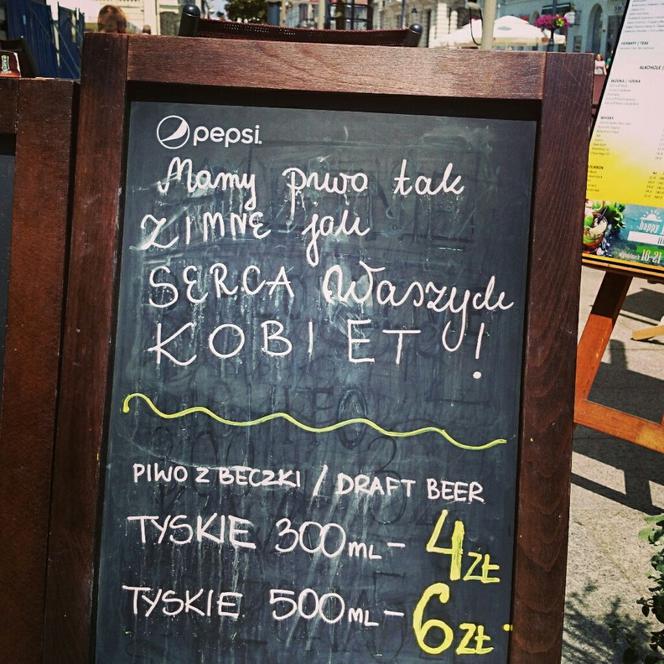 pepsi.
Mamy piwo tak
ZIMNE jak
SERCA Waszych
KOBIET!
PIWO Z BECZKI / DRAFT BEER
TYSKIE 300ML - 4 ZŁ
TYSKIE 500ML - 6 ZŁ
happy